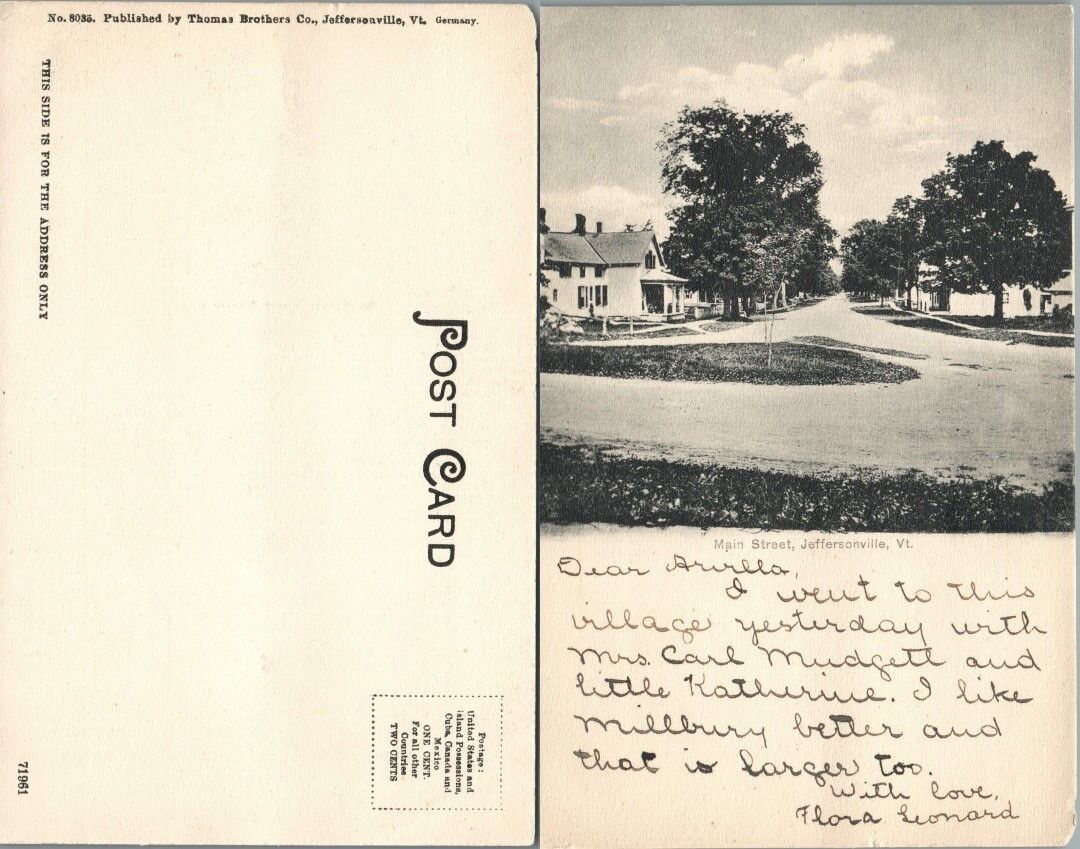 No. 8035. Published by Thomas Brothers Co., Jeffersonville, Vt. Germany.
THIS SIDE IS FOR THE ADDRESS ONLY
POST CARD
Postage:
United States and
island Possessions,
Cuba, Canada and
Mexico
ONE CENT.
For all other
Countries
TWO CENTS
71961
Main Street, Jeffersonville, Vt.
Dear Arvilla,
I went to this
village yesterday with
Mrs. Carl Mudgett and
little Katherine. I like
Millbury better and
that is larger too.
With love,
Flora Leonard